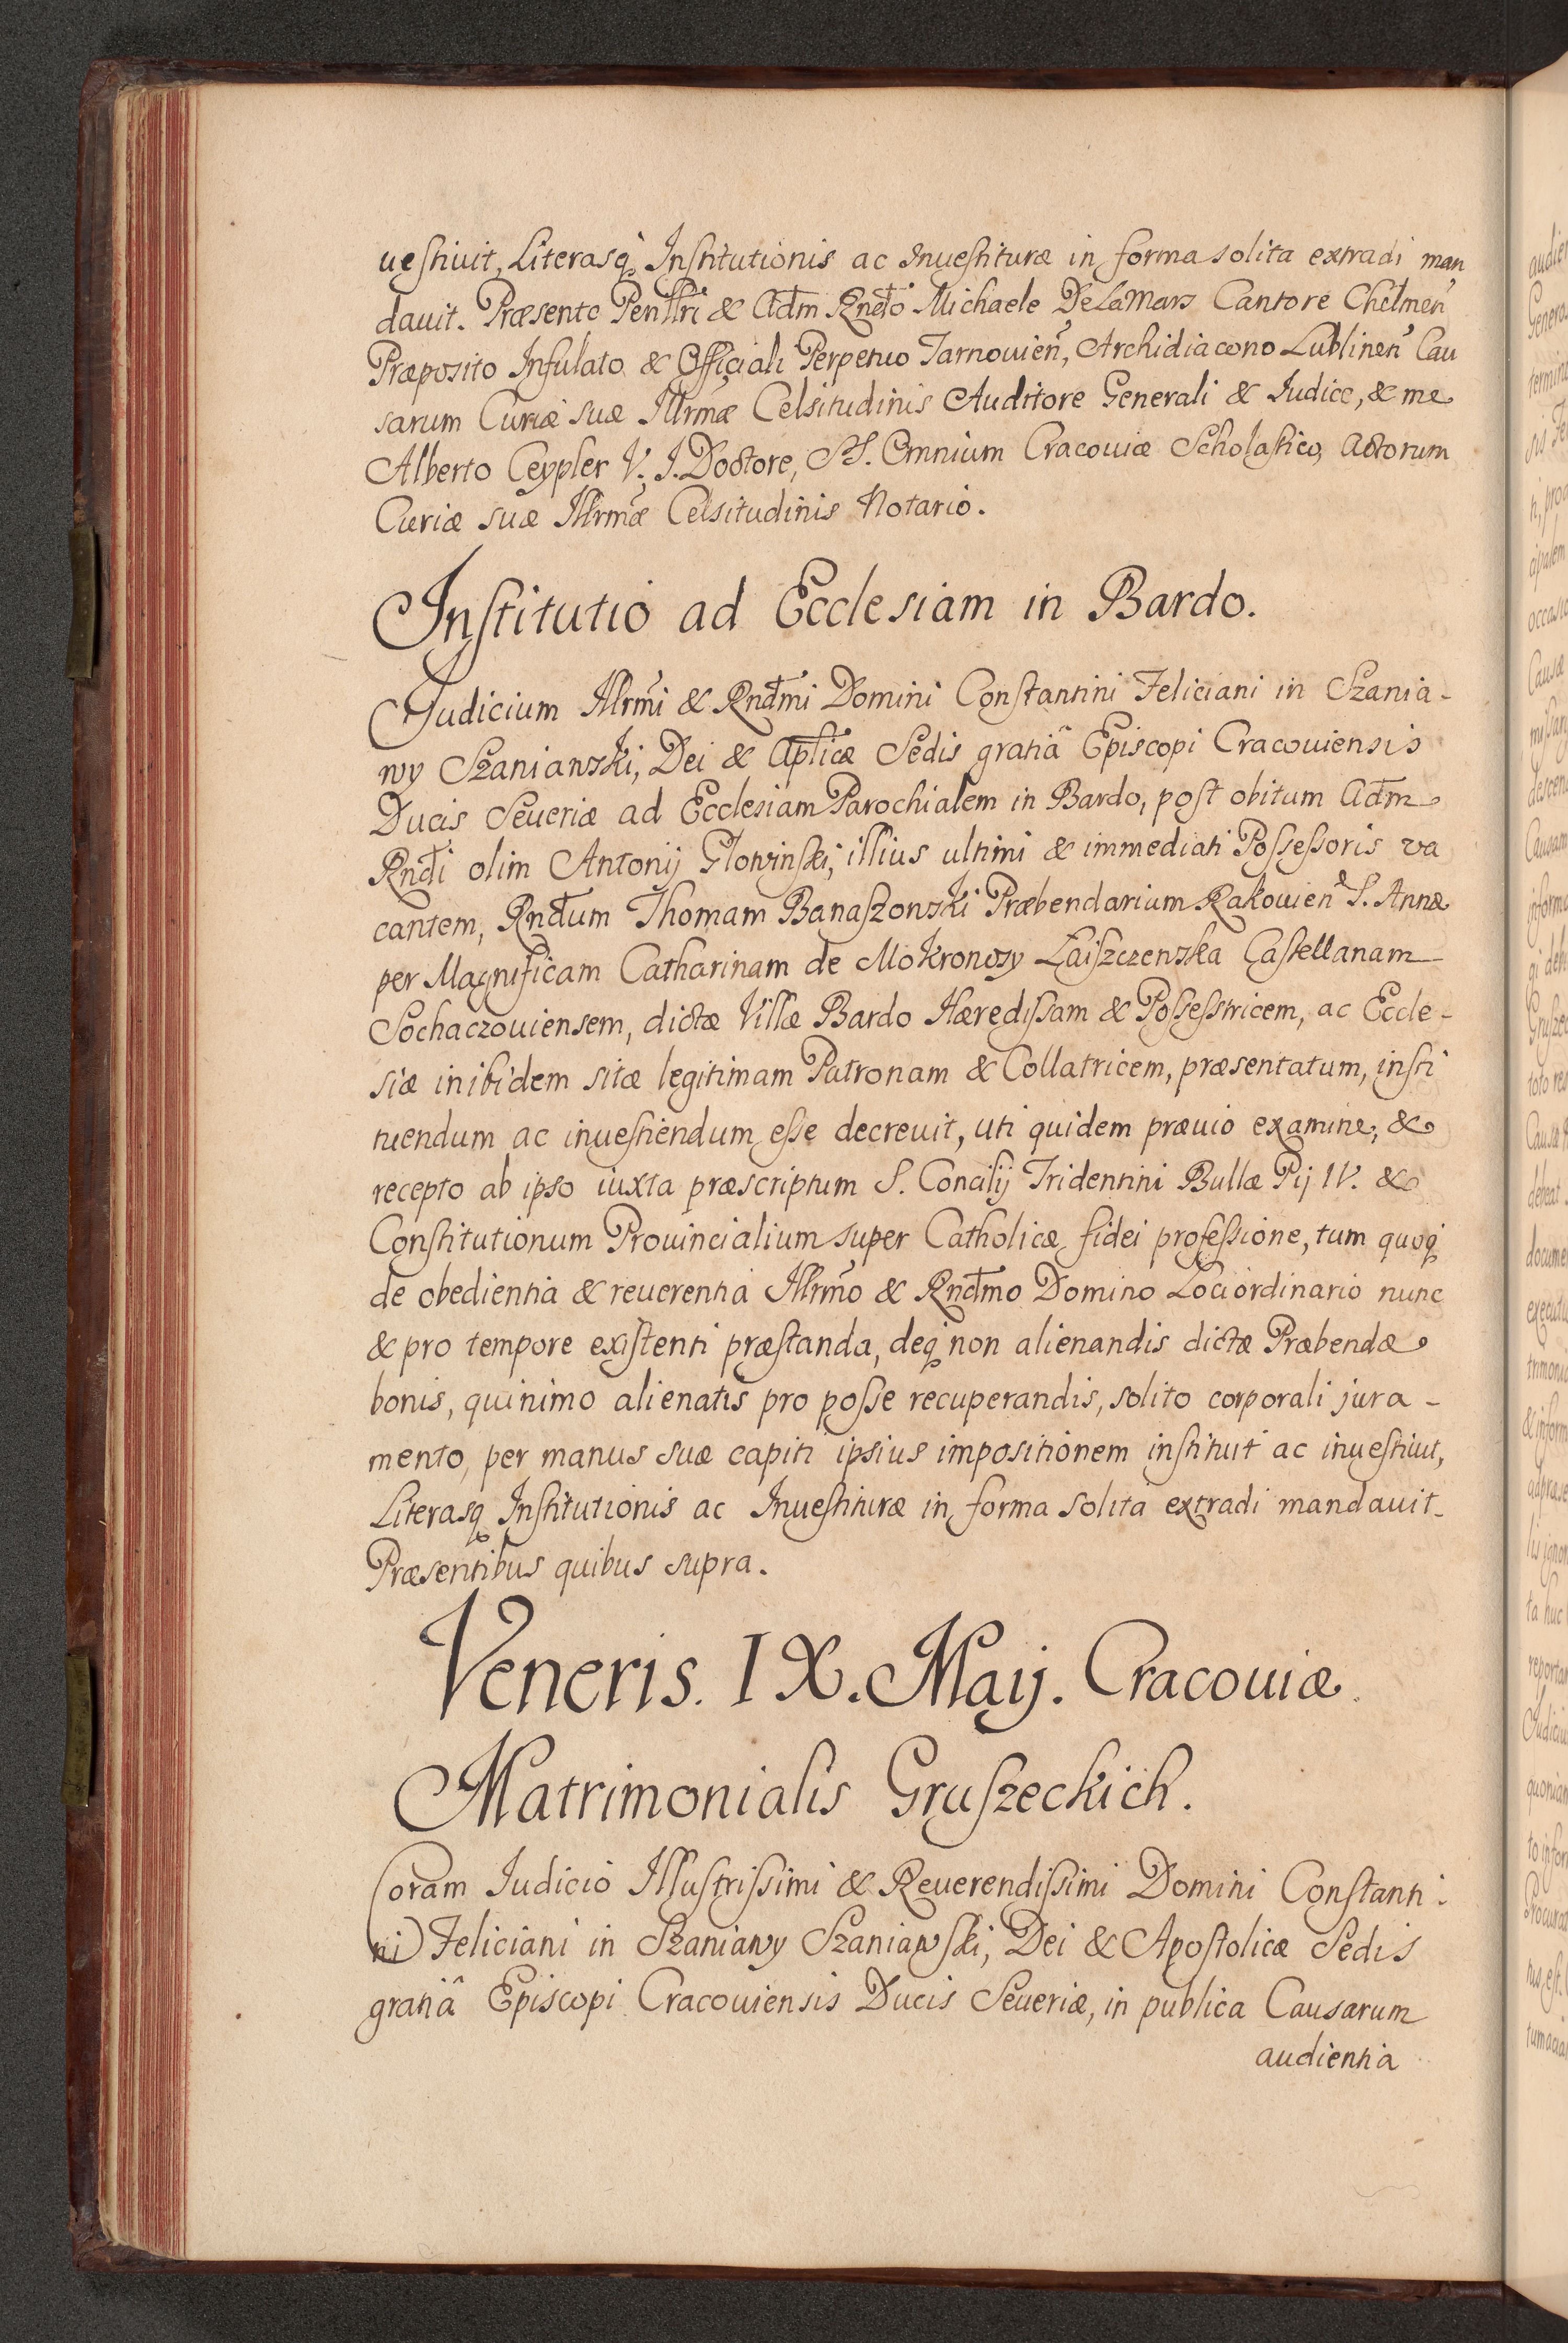 uestiuit, Literasq Institutionis ac Inuestituræ in forma solita extradi man
dauit. Præsente Perillri & Adm Rndo Michaele DeLaMars Cantore Chelmen
Præposito Infulato & Officiali Perpetuo Tarnouien, Archidiacono Lublinen Cau
sarum Curiæ suæ Illrmæ Celsitudinis Auditore Generali & Iudice, & me
Alberto Ceypler V. I. Doctore, SS. Omnium Cracouiæ Scholastico, Actorum
Curiæ suæ Illrmæ Celsitudinis Notario.
Institutio ad Ecclesiam in Bardo.
Judicium Illrmi & Rndmi Domini Constantini Feliciani in Szania-
wy Szaniawski, Dei & Aplicæ Sedis gratiâ Episcopi Cracouiensis
Ducis Seueriæ ad Ecclesiam Parochialem in Bardo, post obitum Adm
Rndi olim Antonij Glowinski, illius ultimi & immediati Possessoris va
cantem, Rndum Thomam Banaszowski Præbendarium Rakouien S. Annæ
per Magnificam Catharinam de Mokronosy Laiszczewska Castellanam
Sochaczouiensem, dictæ Villæ Bardo Hæredissam & Possessricem, ac Eccle-
siæ inibidem sitæ legitimam Patronam & Collatricem, præsentatum, insti
tuendum ac inuestiendum esse decreuit, uti quidem præuio examine, &
recepto ab ipso iuxta præscriptum S. Concilij Tridentini Bullæ Pij IV. &
Constitutionum Prouincialium super Catholicæ fidei professione, tum quoq
de obedientia & reuerentia Illrmo & Rndmo Domino Loci ordinario nunc
& pro tempore existenti præstanda, deq non alienandis dictæ Præbendæ
bonis, quinimo alienatis pro posse recuperandis, solito corporali jura-
mento, per manus suæ capiti ipsius impositionem instituit ac inuestiuit,
Literasq Institutionis ac Inuestituræ in forma solita extradi mandauit.
Præsentibus quibus supra.
Veneris. IX. Maij. Cracouiæ.
Matrimonialis Gruszeckich.
Coram Iudicio Illustrissimi & Reuerendissimi Domini Constanti-
ni Feliciani in Szaniawy Szaniawski, Dei & Apostolicæ Sedis
gratiâ Episcopi Cracouiensis Ducis Seueriæ, in publica Causarum
audientia